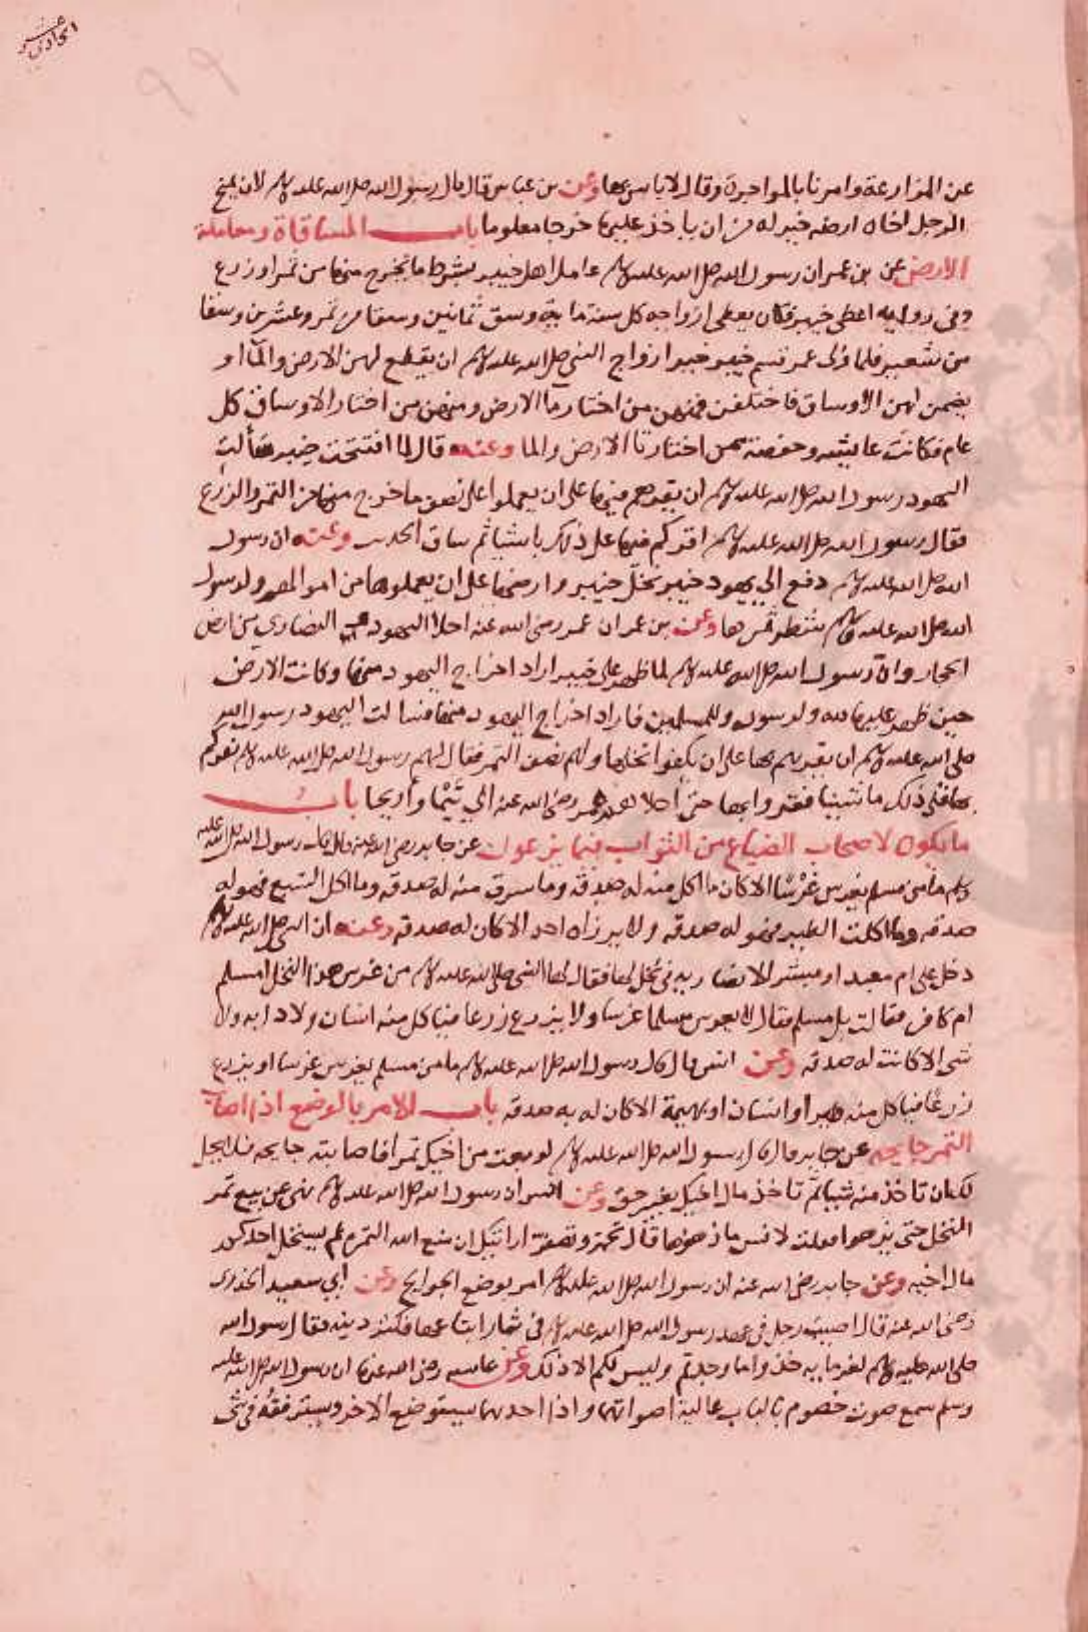 الحادي عشر
٩٩
عن المزارعة وامرنا بالمواجرة وقال لا باس بها وعن بن عباس قال قال رسول الله صلى الله عليه وسلم لان يمنح
الرجل اخاه ارضه خير له من ان ياخذ عليها خرجا معلوما باب المساقاة ومعاملة
الارض عن بن عمر ان رسول الله صلى الله عليه وسلم عامل اهل خيبر بشرط ما يخرج منها من ثمر او زرع
وفي رواية اعطى خيبر فكان يعطي ازواجه كل سنة ماية وسق ثمانين وسقا من تمر وعشرين وسقا
من شعير فلما ولى عمر قسم خيبر خير ازواج النبي صلى الله عليه وسلم ان يقطع لهن الارض والمآ او
يضمن لهن الاوساق فاختلفن فمنهن من اختار ما الارض ومنهن من اختار الاوساق كل
عام فكانت عايشه وحفصة ممن اختارتا الارض والما وعنه قال لما افتتحت خيبر سألت
اليهود رسول الله صلى الله عليه وسلم ان يقرهم فيها على ان يعملوا على نصف ما خرج منها من التمر والزرع
فقال رسول الله صلى الله عليه وسلم اقركم فيها على ذلك ما شيا ثم ساق الحديث وعنه ان رسول
الله صلى الله عليه وسلم دفع الي يهود خيبر نخل خيبر وارضها على ان يعملوها من اموالهم ولرسول
الله صلى الله عليه وسلم شطر ثمرها وعن بن عمر ان عمر رضي الله عنه اجلا اليهود النصاري من ارض
الحجاز وان رسول الله صلى الله عليه وسلم لما ظهر على خيبر اراد اخراج اليهود منها وكانت الارض
حين ظهر عليها لله ولرسوله وللمسلمين فاراد اخراج اليهود منها فسالت اليهود رسول الله
صلى الله عليه وسلم ان يقرهم بها على ان يكفوا نخلها ولهم نصف التمر فقال لهم رسول الله صلى الله عليه وسلم نقركم
بها على ذلك ما شينا فقروا بها حتى اجلاهم عمر رضي الله عنه الي تيما وأريحا باب
ما يكون لاصحاب الضياع من الثواب فيما يزرعون عن جابر رضي الله عنه قال قال رسول الله صلى الله عليه
وسلم ما من مسلم يغرس غرسا الا كان ما اكل منه له صدقة وما سرق منه له صدقه وما اكل السبع فهو له
صدقه وما اكلت الطير فهو له صدقه ولا يرزاه احد الا كان له صدقه وعنه ان النبي صلى الله عليه وسلم
دخل على ام معبد او مبشر الانصاريه في نخل لها فقال لها النبي صلى الله عليه وسلم من غرس هذا النخل امسلم
ام كافر فقالت بل مسلم فقال لا يغرس مسلما غرسا ولا يزرع زرعا فياكل منه انسان ولا دابه ولا
شى الا كانت له صدقه وعن انس قال قال رسول الله صلى الله عليه وسلم ما من مسلم يغرس غرسا او يزرع
زرعا فياكل منه طير او انسان او بهيمة الا كان له به صدقه باب الامر بالوضع اذا اصاب
الثمر جايحه عن جابر قال قال رسول الله صلى الله عليه وسلم لو بعت من اخيك تمرا فاصابته جايحه فلا يحل
لك ان تاخذ منه شيا بم تاخذ مال اخيك بغير حق وعن انس ان رسول الله صلى الله عليه وسلم نهى عن بيع ثمر
النخل حتى يزهوا فقلت لانس ما زهوها قال تحمر وتصفر ارائيك ان منع الله الثمره بم يستحل احدكم
مال اخيه وعن جابر رضي الله عنه ان رسول الله صلى الله عليه وسلم امر بوضع الجوايح وعن ابي سعيد الخدري
رضي الله عنه قال اصيب رجل في عهد رسول الله صلى الله عليه وسلم في ثمار ابتاعها فكثر دينه فقال رسول الله
صلى الله عليه وسلم لغرمايه خذوا ما وجدتم وليس لكم الا ذلك وعن عايشه رضي الله عنها ان رسول الله صلى الله عليه
وسلم سمع صوت خصوم بالباب عالية اصواتهما واذا احدهما يستوضع الاخر ويسترفقه في شى